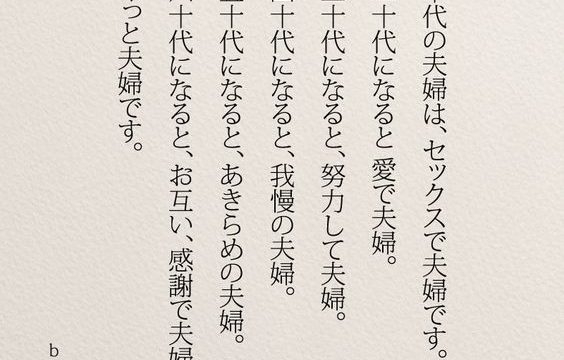 代の夫婦は、セックスで夫婦です。
十代になると 愛で夫婦。
十代になると、努力して夫婦。
十代になると、我慢の夫婦。
十代になると、あきらめの夫婦。
十代になると、お互い、感謝で夫婦
っと夫婦です。
b